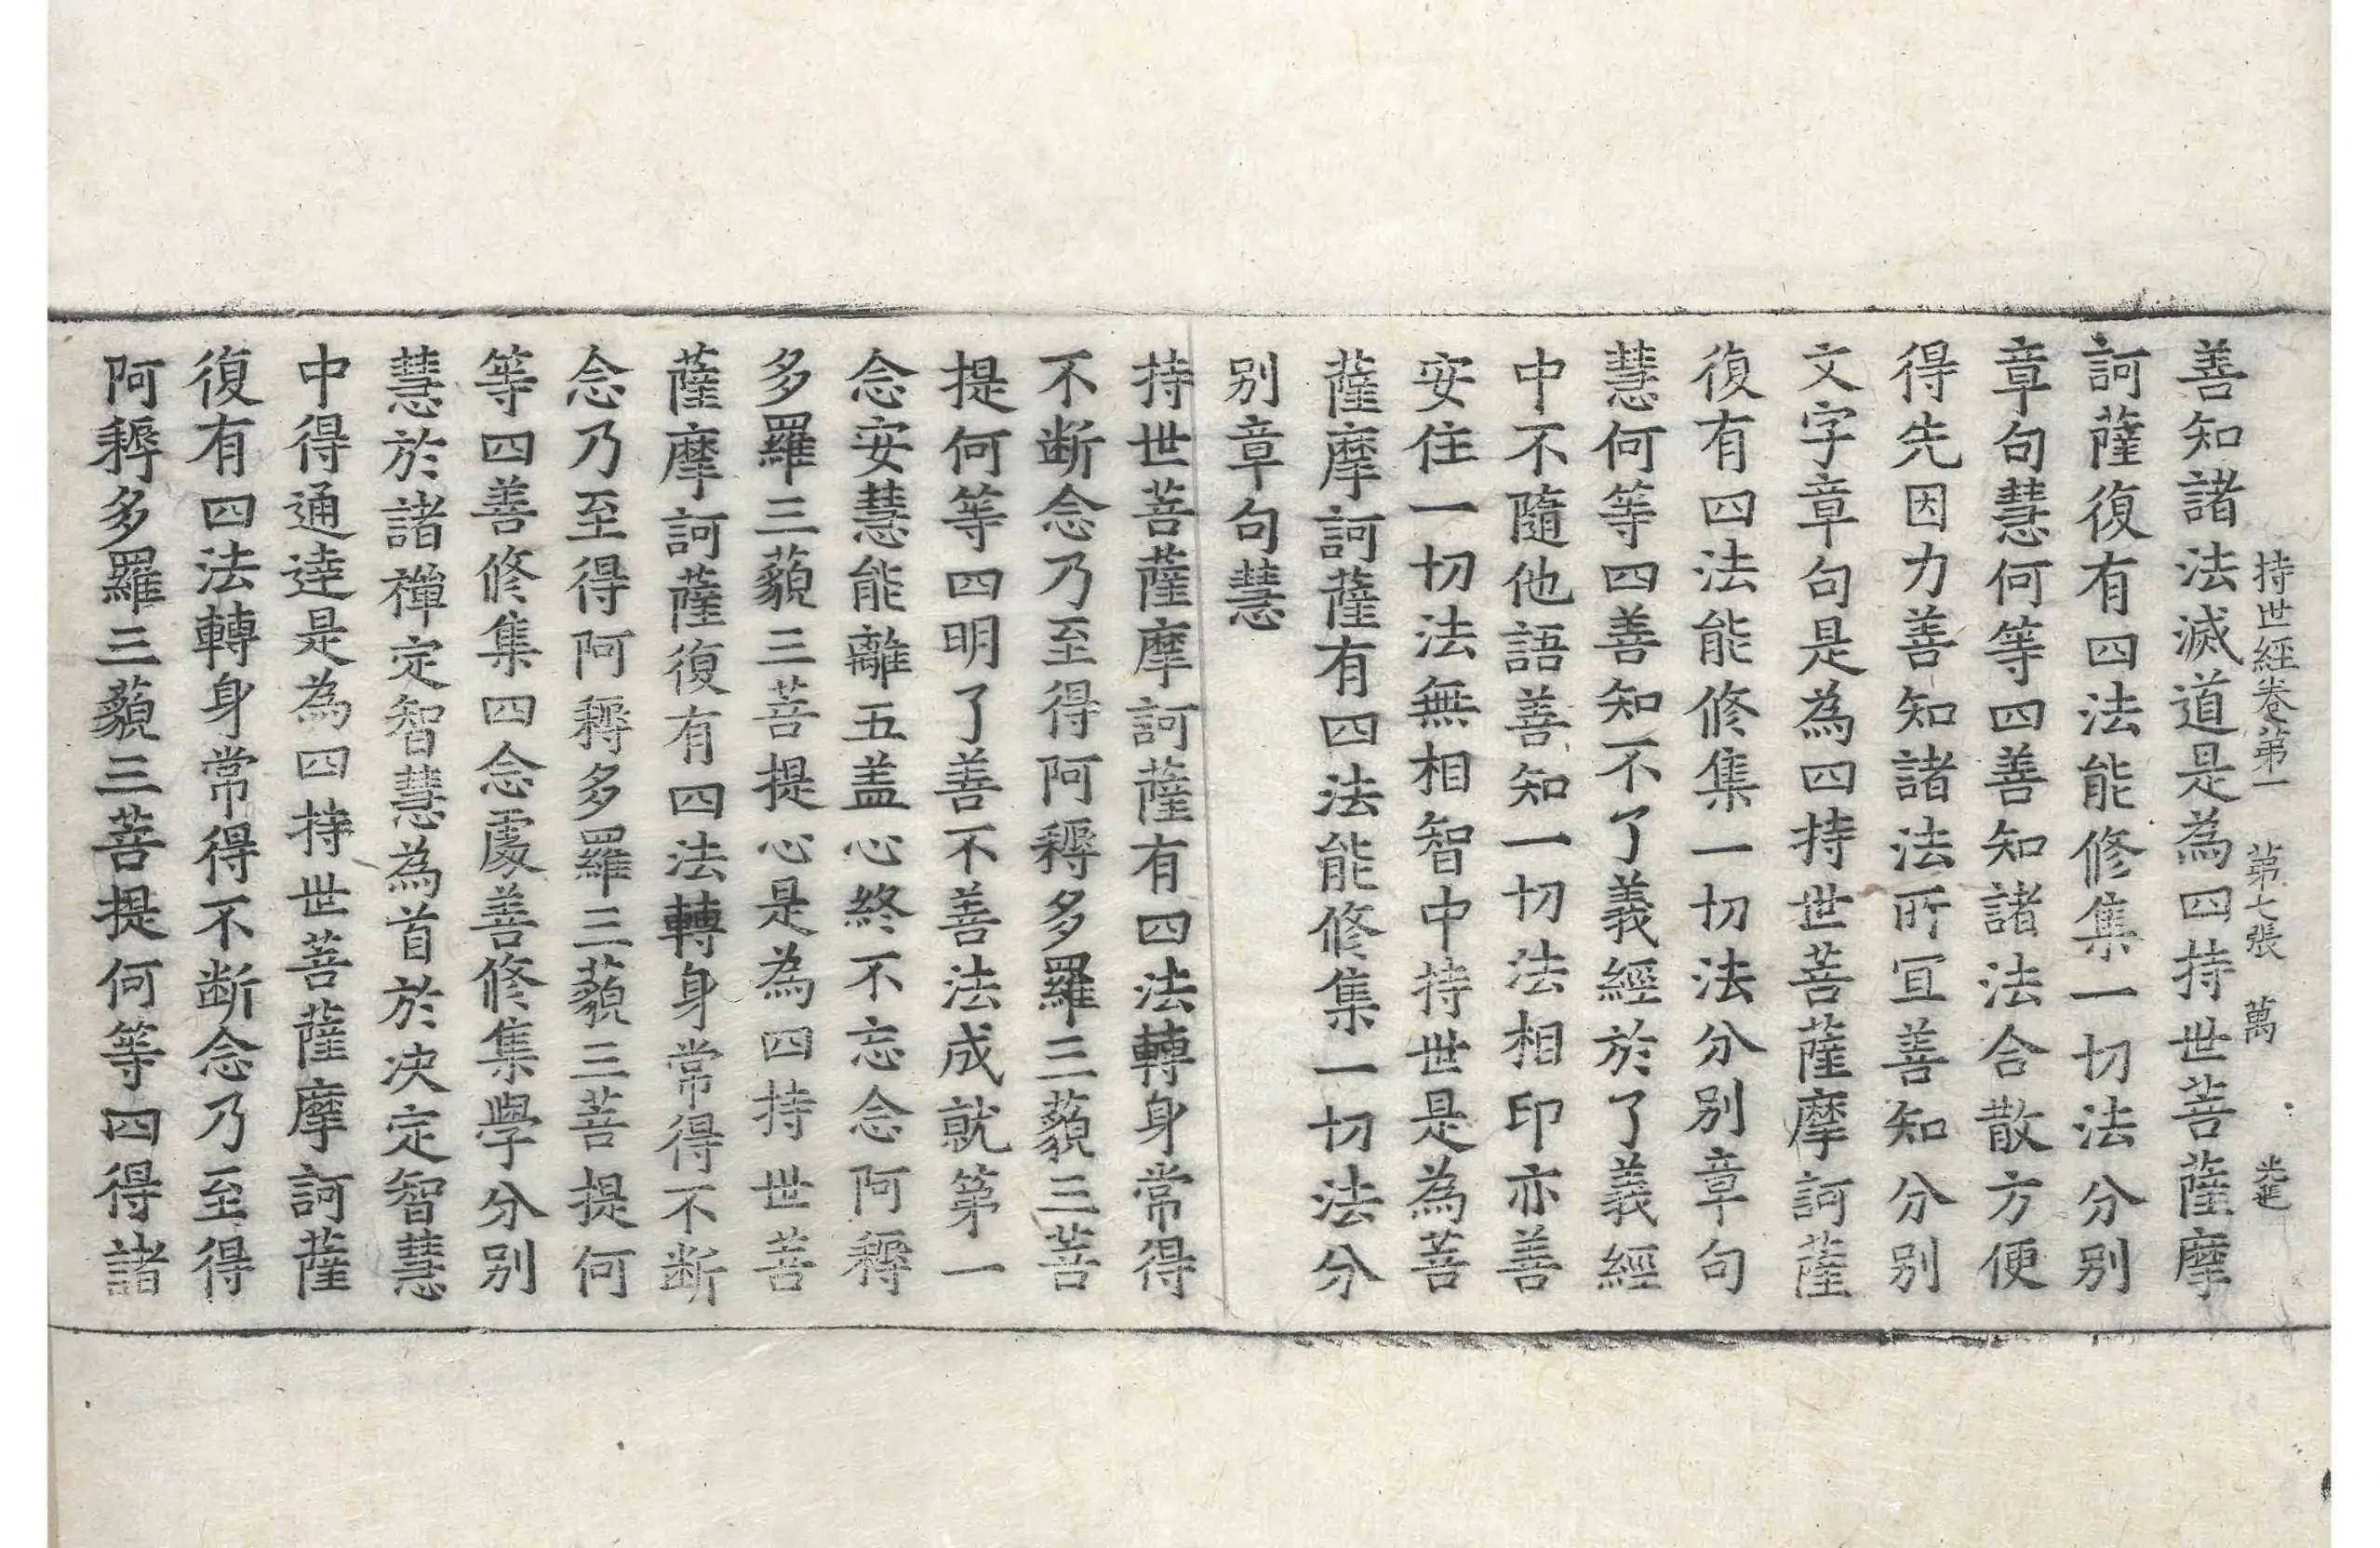 持世經卷第一　第七張　萬　光進
善知諸法滅道是為四持世菩薩摩
訶薩復有四法能修集一切法分別
章句慧何等四善知諸法合散方便
得先因力善知諸法所冝善知分別
文字章句是為四持世菩薩摩訶薩
復有四法能修集一切法分別章句
慧何等四善知不了義經於了義經
中不隨他語善知一切法相印亦善
安住一切法無相智中持世是為菩
薩摩訶薩有四法能修集一切法分
別章句慧
持世菩薩摩訶薩有四法轉身常得
不断念乃至得阿耨多羅三藐三菩
提何等四明了善不善法成就第一
念安慧能離五盖心終不忘念阿耨
多羅三藐三菩提心是為四持世菩
薩摩訶薩復有四法轉身常得不断
念乃至得阿耨多羅三藐三菩提何
等四善修集四念處善修集學分別
慧於諸禪定智慧為首於决定智慧
中得通達是為四持世菩薩摩訶薩
復有四法轉身常得不断念乃至得
阿耨多羅三藐三菩提何等四得諸